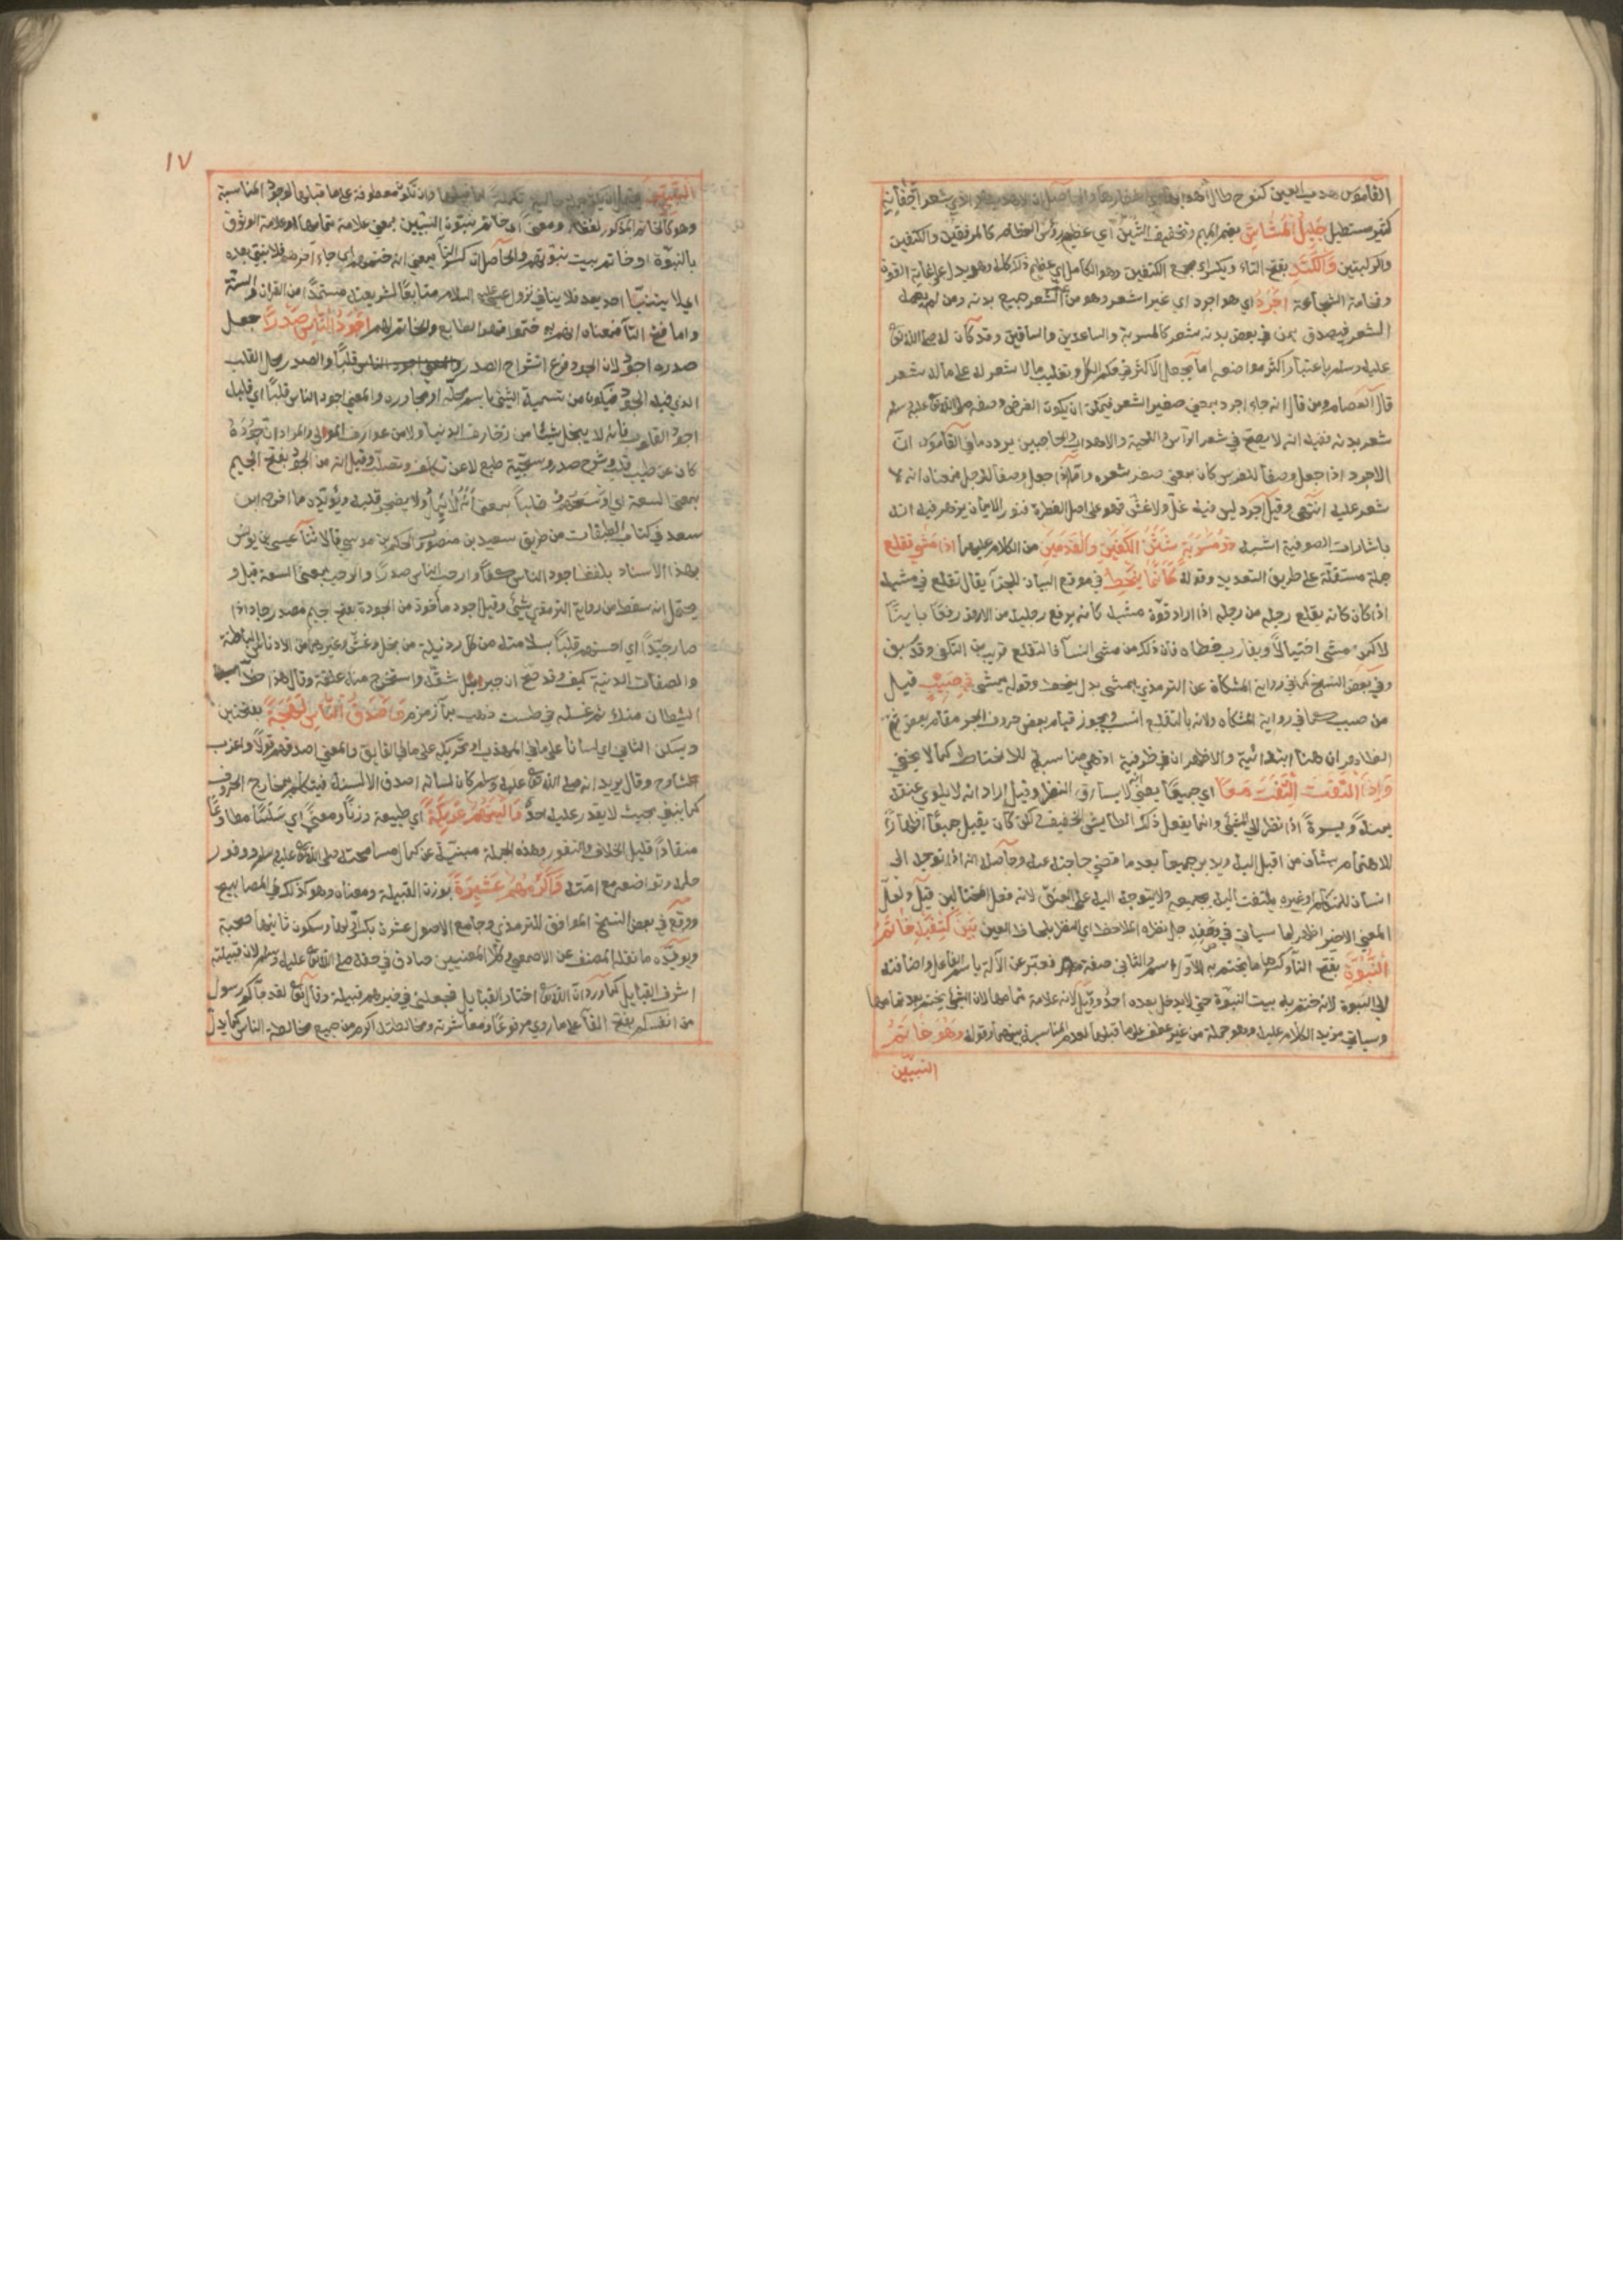 القاموس هدب العين كفرح طال اهدابها الذي شعر اجفانه
كثير مستطيل جَلِيلُ الْمُشَاشِ بضم الميم وتخفيف الشين اي عظيم رؤس العظام كالمرفقين والكتفين
والركبتين وَالْكَتَدِ بفتح التاء ويكسر اي مجمع الكتفين وهو الكاهل اي عظيم ذلك كله وهو يدل على غاية القوة
وفخامة الشجاعة اَجْرَدُ اي هو اجرد اي غير اشعر وهو من عم الشعر جميع بدنه ومن لم يعمه
الشعر فيصدق بمن في بعض بدنه شعر كالمسربة والساعدين والساقين وقد كان له صلى الله تعالى
عليه وسلم باعتبار اكثر مواضعه اما بجعل الاكثر في حكم الكل وتغليب ما لا شعر له على ما له شعر
قال العصام ومن قال انه جاء اجرد بمعنى صغير الشعر فيمكن ان يكون الغرض وصفه صلى الله تعالى عليه وسلم
شعر بدنه ففيه انه لا يصح في شعر الرأس واللحية والاهداب والحاجبين يرده ما في القاموس ان
الاجرد اذا جعل وصفا للفرس كان بمعنى صغر شعره واما اذا جعل وصفا للرجل فمعناه انه لا
شعر عليه انتهى وقيل اجرد ليس فيه غل ولا غش فهو على اصل الفطرة فنور الايمان يزهر فيه انه
باشارات الصوفية اشبه ذو مَسْرُبَةٍ شَثْنُ الْكَفَّيْنِ وَالْقَدَمَيْنِ مر الكلام عليهما اذا مشى تقلع
جملة مستقلة على طريق التعديد وقوله كَأَنَّمَا يَنْحَطُّ في موقع البيان للجزاء يقال تقلع في مشيه
اذا كان كانه يقلع رجله من رجله اذا اراد قوة مشيه كانه يرفع رجليه من الارض رفعا باينا
لا كمن مشى اختيالا ويقارب خطاه فان ذلك من مشي النساء فالتقلع قريب من التكفي وقد سبق
وفي بعض النسخ كما في رواية المشكاة عن الترمذي يمشي بدل ينحط وقوله يمشي في صَبَبٍ قيل
من صبب كما في رواية المشكاه ولانه بالتقلع انسب ويجوز قيام بعض حروف الجر مقام بعض ثم
الظاهر ان هنا ابتدائية والاظهر ان في ظرفية اذ هي مناسبة للانحطاط كما لا يخفى
وَاِذَا الْتَفَتَ اِلْتَفَتَ مَعًا اي جميعا يعني انه لا يسارق النظر وقيل اراد انه لا يلوي عنقه
يمنة ويسرة اذا نظر الى الشئ وانما يفعل ذلك الطايش الخفيف ولكن كان يقبل جميعا اظهارا
للاهتمام بشان من اقبل اليه ويدبر جميعا بعد ما قضى حاجته عنه وحاصله انه اذا توجه الى
انسان للتكلم او غيره يلتفت اليه بجميعه ولا يتوجه اليه على العنق لانه فعل المختالين قيل ولعل
المعنى الاخير اظهر لما سياتي في وصفه جل نظره الملاحظة اي النظر بلحاظ العين بَيْنَ كَتِفَيْهِ خَاتَمُ
النُّبُوَّةِ بفتح التاء وكسرها ما يختم به الاول اسم والثاني صفة فعبر عن الآلة باسم الفاعل واضافته
الى النبوة لانه ختم به بيت النبوة حتى لا يدخل بعده احد وقيل لانه علامة تمامها لان الشئ يختم بعد تمامها
وسياتي مزيد الكلام عليه وهو جملة من غير عطف على ما قبلها لعدم المناسبة بينهما وقوله وَهُوَ خَاتَمُ
النبيين
١٧
النبيين يحتمل ان يكون وان تكون معطوفة على ما قبلها لوجود المناسبة
وهو كالخاتم المذكور لفظا ومعنى اي خاتم نبوة النبيين بمعنى علامة تمامها او علامة الوثوق
بالنبوة او خاتم بيت نبوتهم والحاصل ان كسر التاء بمعنى انه ختمهم اي جاء آخرهم فلا نبي بعده
اي لا يتنبأ احد بعده فلا ينافي نزول عيسى عليه السلام متابعا لشريعته مستمدا من القران والسنة
واما فتح التاء فمعناه انهم به ختموا فهو الطابع والخاتم لهم اَجْوَدُ النَّاسِ صَدْرًا جعل
صدره اجود لان الجود فرع انشراح الصدر والمعنى اجود الناس قلبا والصدر محل القلب
الذي فيه الجود فيكون من تسمية الشئ باسم محله او مجاوره والمعنى اجود الناس قلبا اي قلبه
اجود القلوب فانه لا يبخل شيئا من زخارف الدنيا ولا من عوارف المولى والمراد ان جُوْدَهُ
كان عن طيب قلب وشرح صدر وسجية طبع لا عن تكلف وتصلف وقيل انه من الجود بفتح الجيم
بمعنى السعة اي اوسعهم قلبا بمعنى انه لا يمل ولا يضجر قلبه ويؤيده ما اخرجه ابن
سعد في كتاب الطبقات من طريق سعيد بن منصور والحكم بن موسى قالا ثنا عيسى بن يونس
بهذا الاسناد بلفظ اجود الناس كفا وارحب الناس صدرا والرحب بمعنى السعة قيل و
يحتمل انه سقط من رواية الترمذي شئ وقيل اجود مأخوذ من الجودة بفتح جيم مصدر جاد اذا
صار جيدا اي احسنهم قلبا بسلامته من كل رذيلة من بخل وغش وغيرهما من الادناس الباطنة
والصفات الدنية كيف وقد صح ان جبرائيل شقه واستخرج منه علقة وقال هذا حظ
الشيطان منك ثم غسله في طست ذهب بماء زمزم وَاَصْدَقُ النَّاسِ لَهْجَةً بفتحتين
ويسكن الثاني اي لسانا على ما في المهذب او تحريكه على ما في الفايق والمعنى اصدقهم قولا واغرب
شارح وقال يريد انه صلى الله تعالى عليه وسلم كان لسانه اصدق الالسنة فيتكلم بمخارج الحروف
كما ينبغي بحيث لا يقدر عليه احد وَاَلْيَنُهُمْ عَرِيْكَةً اي طبيعة وزنا ومعنى اي سلسا مطاوعا
منقادا قليل الخلاف والنفور وهذه الجملة مبنية عن كمال مسامحته صلى الله تعالى عليه وسلم ووفور
حلمه وتواضعه مع امته وَاَكْرَمُهُمْ عَشِيْرَةً بوزن القبيلة ومعناه وهو كذلك في المصابيح
ووقع في بعض النسخ الموافق للترمذي وجامع الاصول عشرة بكسر اولها وسكون ثانيها صحبة
ويؤيده ما نقله المصنف عن الاصمعي وكلا المعنيين صادق في حقه صلى الله تعالى عليه وسلم لان قبيلته
اشرف القبايل كما ورد ان الله تعالى اختار القبايل فجعلني في خيرهم قبيلة وقال تعالى لقد جاءكم رسول
من انفسكم بفتح الفاء على ما روي مرفوعا ومعاشرته ومخالطته اكرم من جميع مخالطة الناس كما يدل